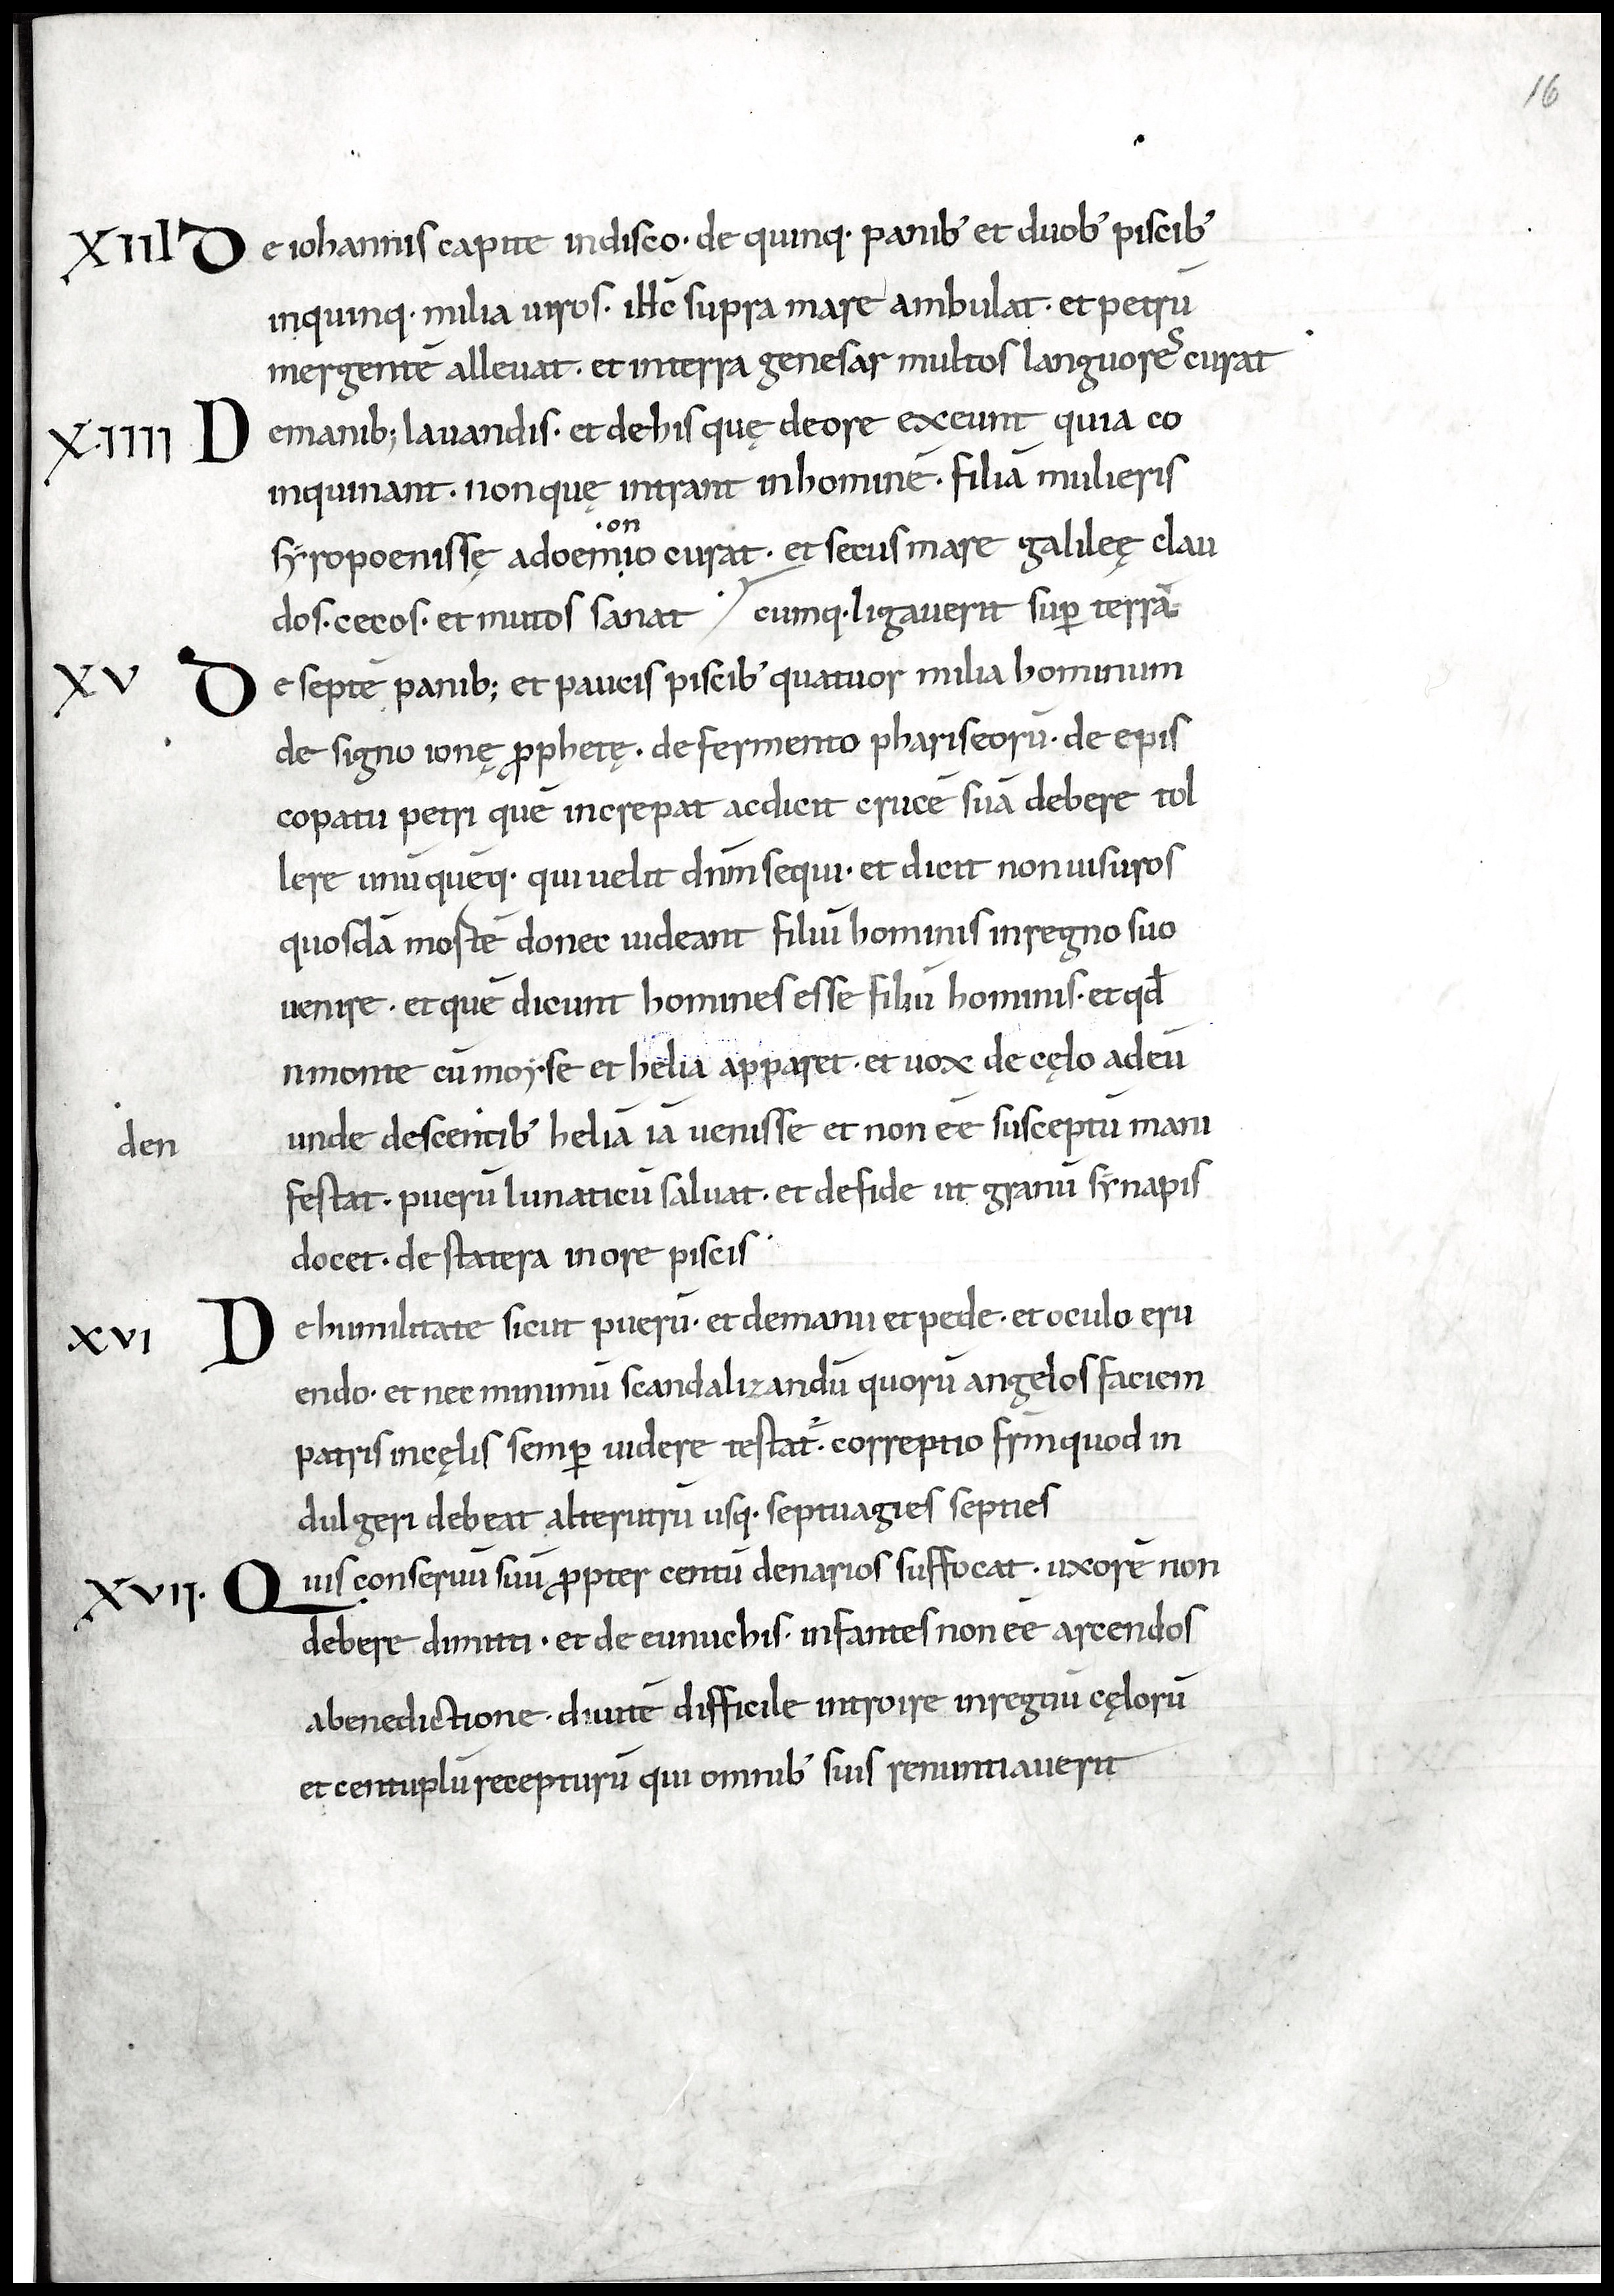 16
XIII De iohannis capite indisco· de quinq· panib' et duob' piscib'
inquinq· milia uiros· ihc̄ supra mare ambulat· et petrū
mergentē alleuat· et interra genesar multos languores curat
X·IIII Demanib; lauandis· et dehis quę deore exeunt quia co
inquinant· nonquę intrant inhominē· filiā mulieris
·on
syropoenissę adoemio curat· et secus mare galileę clau
dos· cecos· et mutos sanat / cumq· ligauerit sup̄ terrā
XV De septē panib; et paucis piscib' quatuor milia hominum
de signo ionę p̄phetę· de fermento phariseorū· de epis
copatu petri quē increpat acdicit crucē suā debere tol
lere unūquēq· qui uelit dn̄m sequi· et dicit non uisuros
quosdā mortē donec uideant filiū hominis inregno suo
uenire· et quē dicunt homines esse filiū hominis· et qd̄
nmonte cū moyse et helia apparet· et uox de cęlo adeū
den unde descentib' heliā iā uenisse et non ēē susceptū mani
festat· puerū lunaticū saluat· et defide ut granū synapis
docet· de statera inore piscis
XVI De humilitate sicut puerū· et demanu et pede· et oculo eru
endo· et nec minimū scandalizandū quorū angelos faciem
patris incęlis semp̄ uidere testat'· correptio fr̄m quod in
dulgeri debeat alterutrū usq· septuagies septies
XVII· Quis conseruū suū p̄pter centū denarios suffocat· uxorē non
debere dimitti· et de eunuchis· infantes non ēē arcendos
abenedictione· diuitē difficile introire inregnū cęlorū
et centuplū recepturū qui omnib' suis renuntiauerit